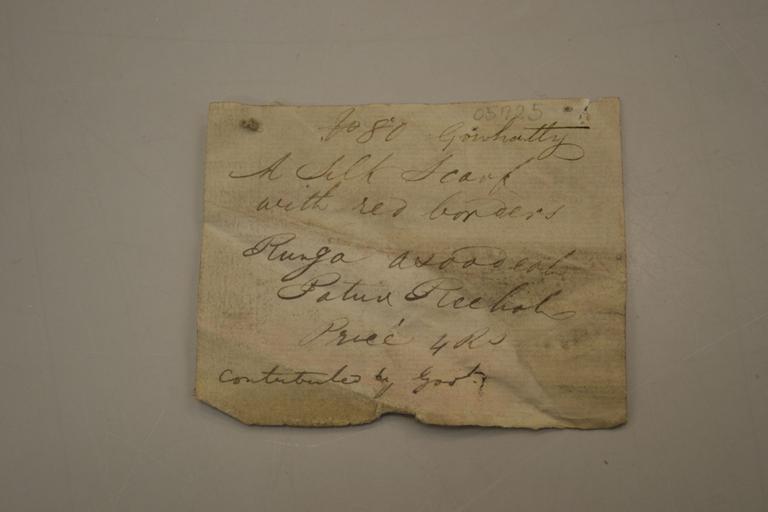 05725
No 80 Gowhatty
A Silk Scarf
with red borders
Runga
Patur Reehah
Price 4 Rs
contributed by Govt.